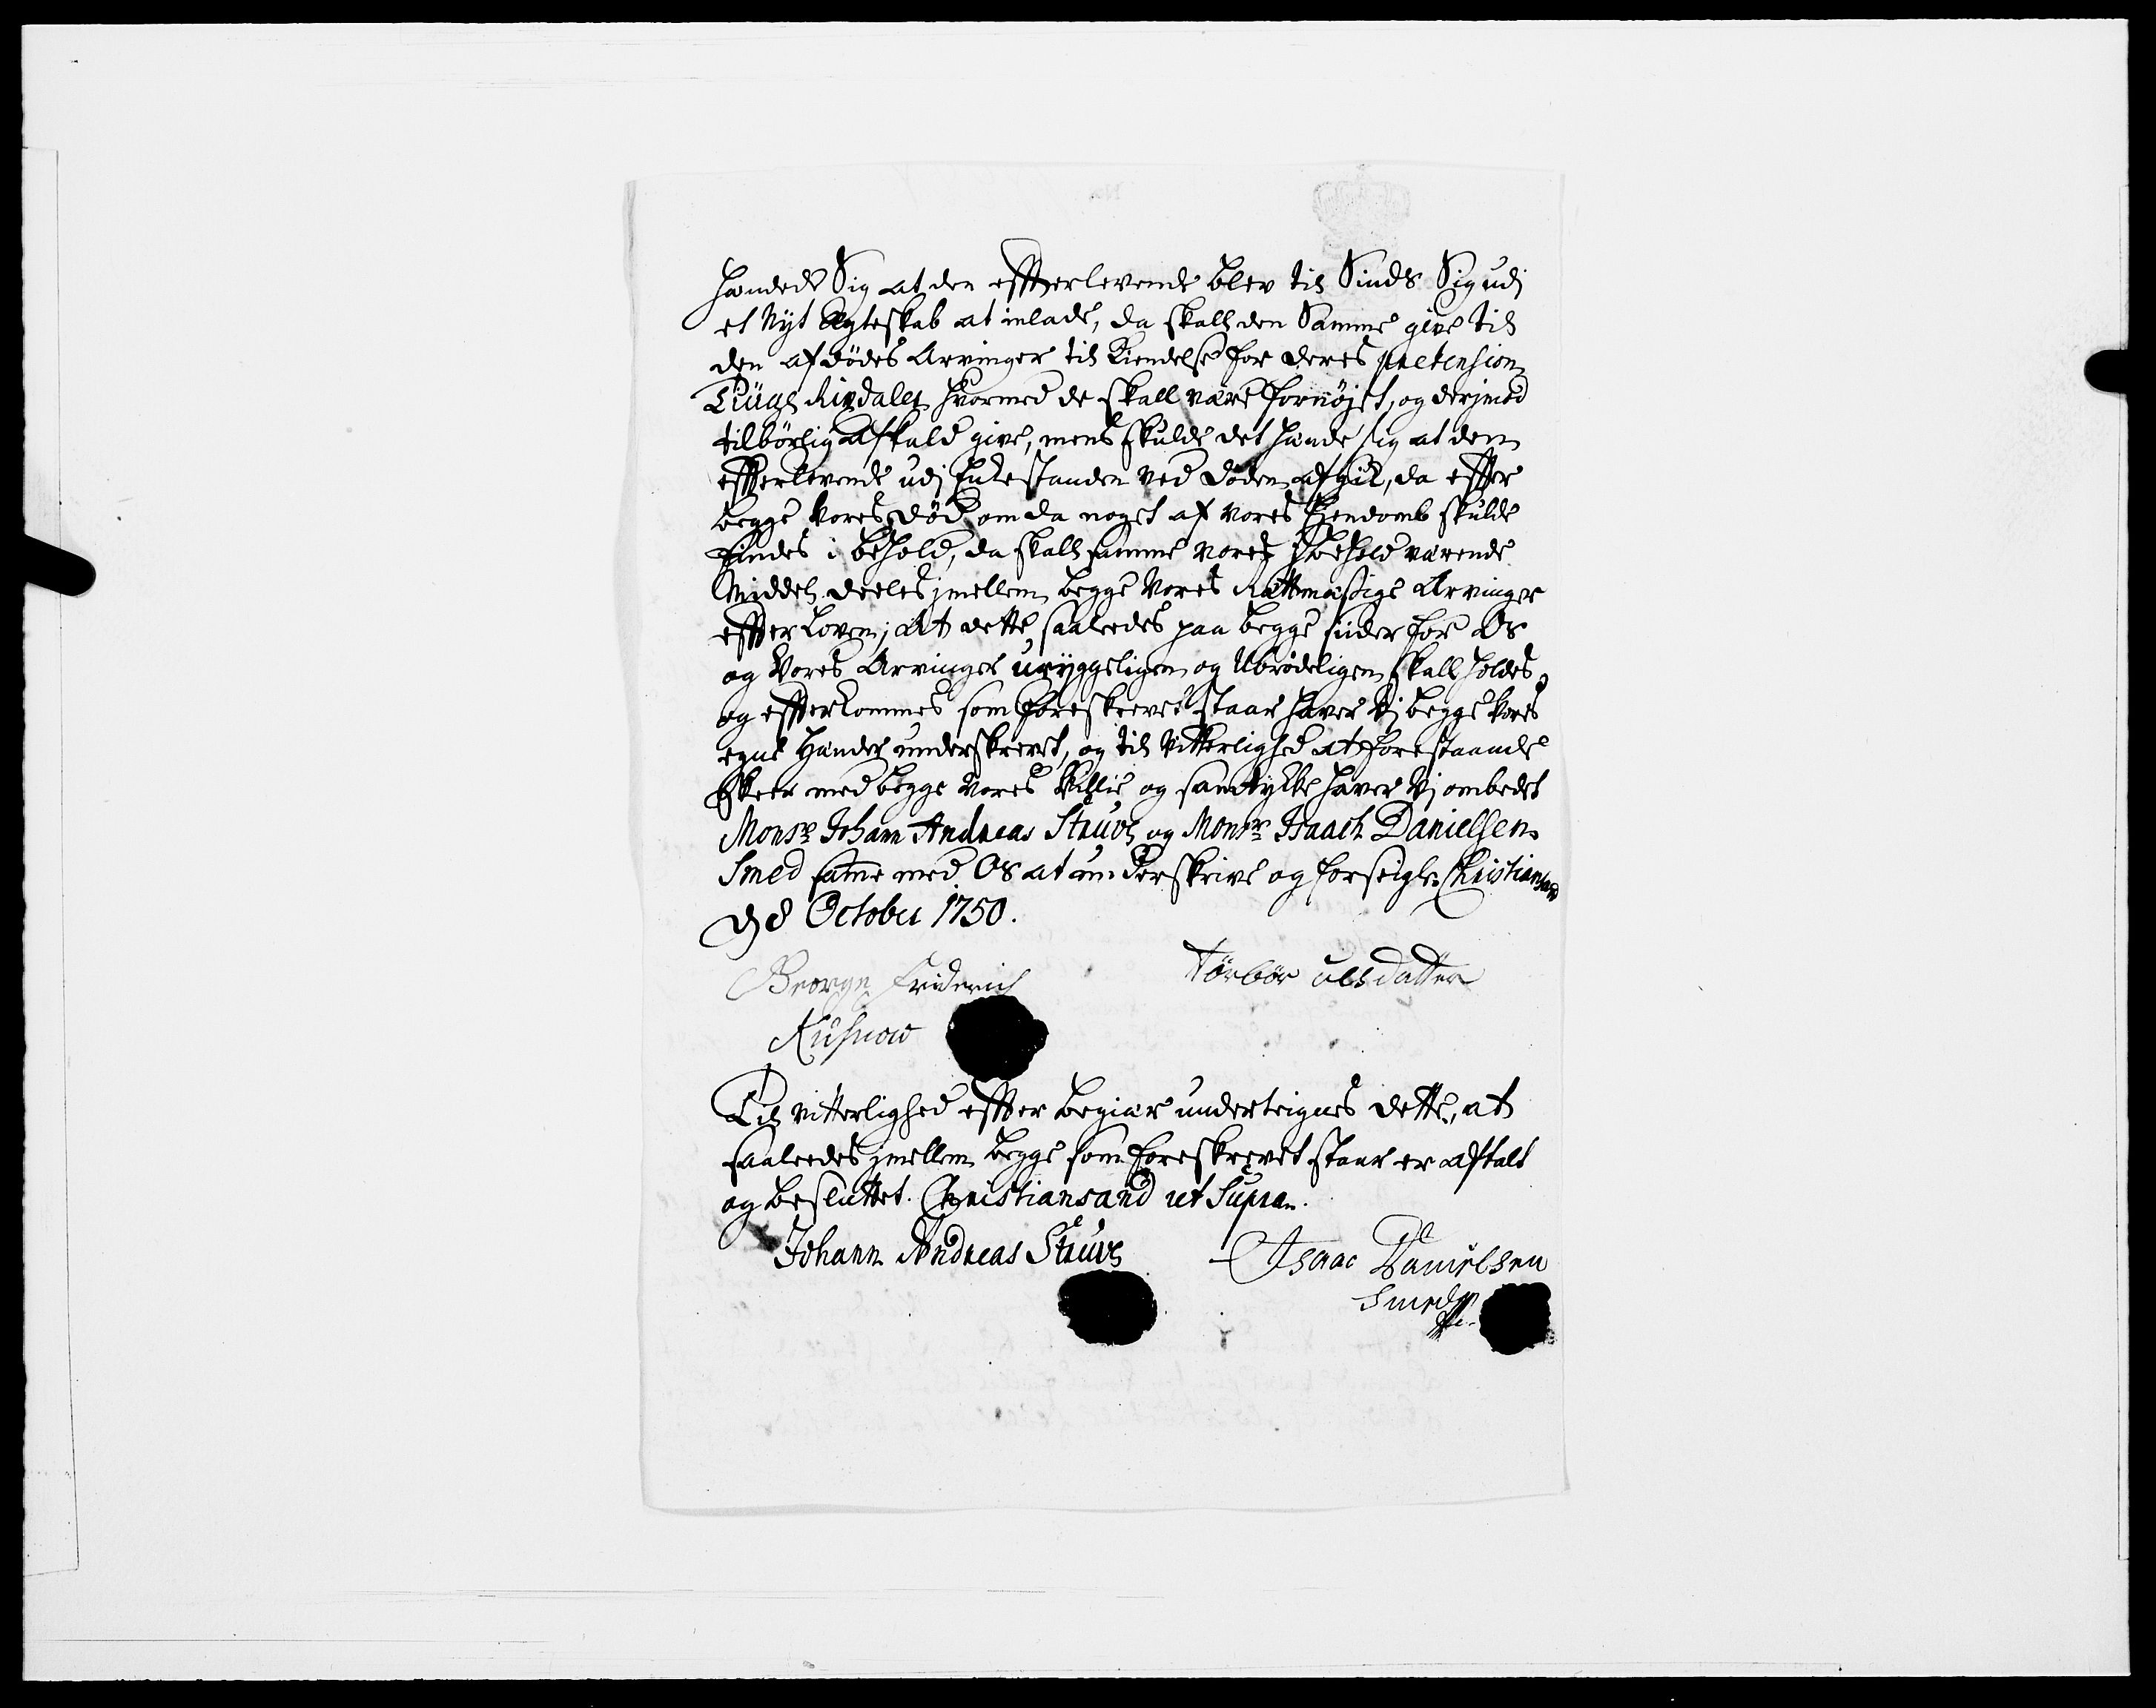 hændede Sig at den effterlevende blev til Sinds Sig udj
et Nyt Ægteskab at inlade, da skall den Samme give til
den afdødes Arvinger til Kiendelse for deres prætension
Tiüge Rixdaler hvormed de skall være fornøjet, og derjmod
tilbörlig Afkald give, mens skulde det hænde sig at den
effterlevende udj Enkestanden ved Döden afgik, da effter
begge Vores Död om da noget af vores Ejendomb skulde
findes i behold, da skall samme vores jbehold værende
Middel deeles jmellem begge Vores Rættmæssige Arvinger
effter Loven; At dette saaleedes paa begge sider for Os
og Vores Arvinger uryggeligen og Ubrödeligen skall holdes
og effterkommes som foreskrevet staar haver Vj begge Vores
egne Hænder underskrevet, og til Vitterlighed at forestaaende
skeer med begge Vores Villie og samtykke haver Vj ombedet
Monsr Johann Andreas Struve og Monsr Isaach Danielsen
Smed samme med Os at underskrive og forseigle. Christiansand
d 8 October 1750.
George Friderich
Torbör olsdatter
Kuhnow
Til Vitterlighed effter begiær underteignes dette, at
saaleedes jmellem begge som foreskrevet staar er aftalt
og besluttet. Christiansand ut Supra.
Johann Andreas Struve
Isaac Danielsen
Smed